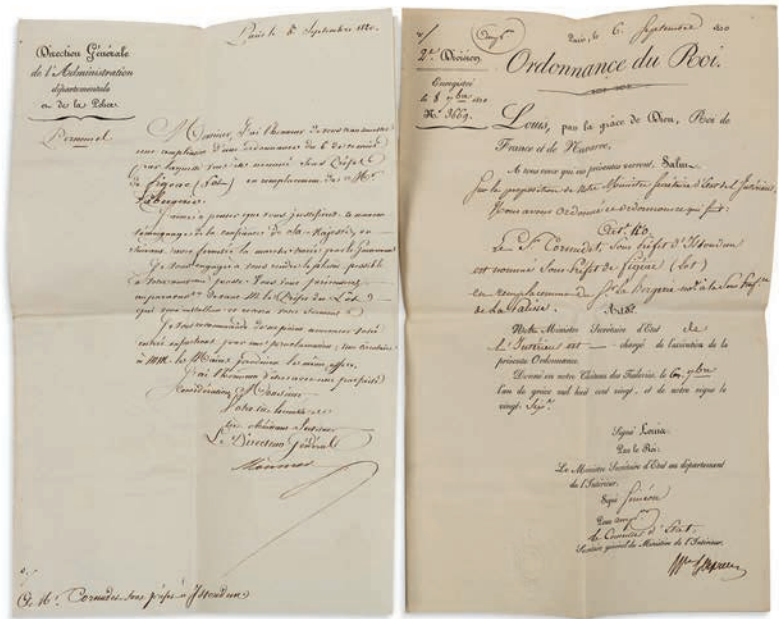 Paris le 8 Septembre 1820.
Direction Générale
de l'Administration
départementale
et de la Police
Personnel
Monsieur, J'ai l'honneur de vous transmettre
une ampliation d'une ordonnance du 6 de ce mois
par laquelle vous êtes nommé Sous Préfet
de figeac (Lot) en remplacement de Mr
Labergerie.
J'aime à penser que vous justifierez ce nouveau
témoignage de la confiance de Sa Majesté, en
suivant avec fermeté la marche tracée par le Gouvernement
Je vous engage à vous rendre le plutôt possible
à votre nouveau poste. Vous vous présenterez
auparavant devant M. le Préfet du Lot
qui vous installera et recevra votre serment
Je vous recommande de ne point annoncer votre
entrée en fonctions par une proclamation; une circulaire
à MM. les Maires produira le même effet.
J'ai l'honneur d'être avec une parfaite
Considération, Monsieur
Votre très humble et
très obéissant Serviteur
Le Directeur Général
Mounier
à Mr. Cornudet, sous préfet à Issoudun
Paris, le 6 Septembre 1820
2e. Division
Ordonnance du Roi.
Enregistré
le 8 7bre 1820
No. 3669.
Louis, par la grâce de Dieu, Roi de
France et de Navarre,
A tous ceux qui ces présentes verront, Salut.
Sur la proposition de notre Ministre Secrétaire d'Etat de l'Intérieur
Nous avons Ordonné et Ordonnons ce qui suit:
Art. 1er.
Le Sr. Cornudet, Sous préfet d'Issoudun
est nommé Sous Préfet de figeac (Lot)
en remplacement du Sr. La Bergerie à la Sous Préfre
de La Palisse.
Art. 2.
Notre Ministre Secrétaire d'Etat de
l'Intérieur est chargé de l'exécution de la
présente Ordonnance.
Donné en notre Château des Tuileries, le 6 7bre
l'an de grâce mil huit cent vingt, et de notre règne le
vingt Six.
Signé Louis.
Par le Roi:
Le Ministre Secrétaire d'Etat au département
de l'Intérieur.
Signé Siméon
Pour ampon.
le Conseiller d'Etat,
Secrétaire général du Ministère de l'Intérieur.